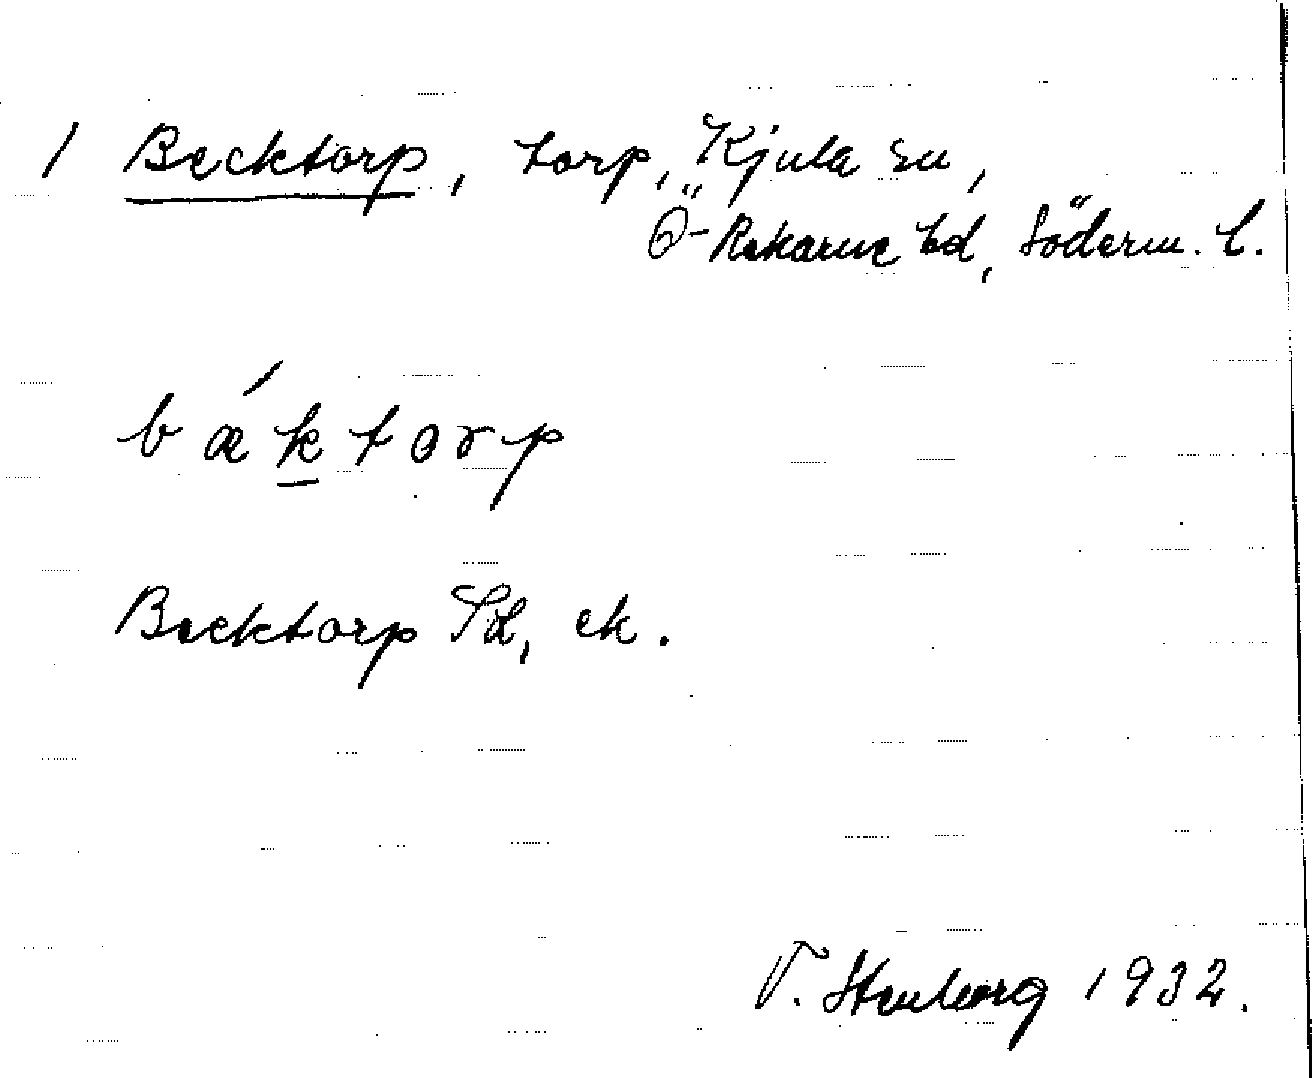 1 Becktorp, torp, Kjula sn,
Ö-Rekarne hd, Söderm. l.
bæ´ktorp
Becktorp Sd, ek.
T. Stenborg 1932.